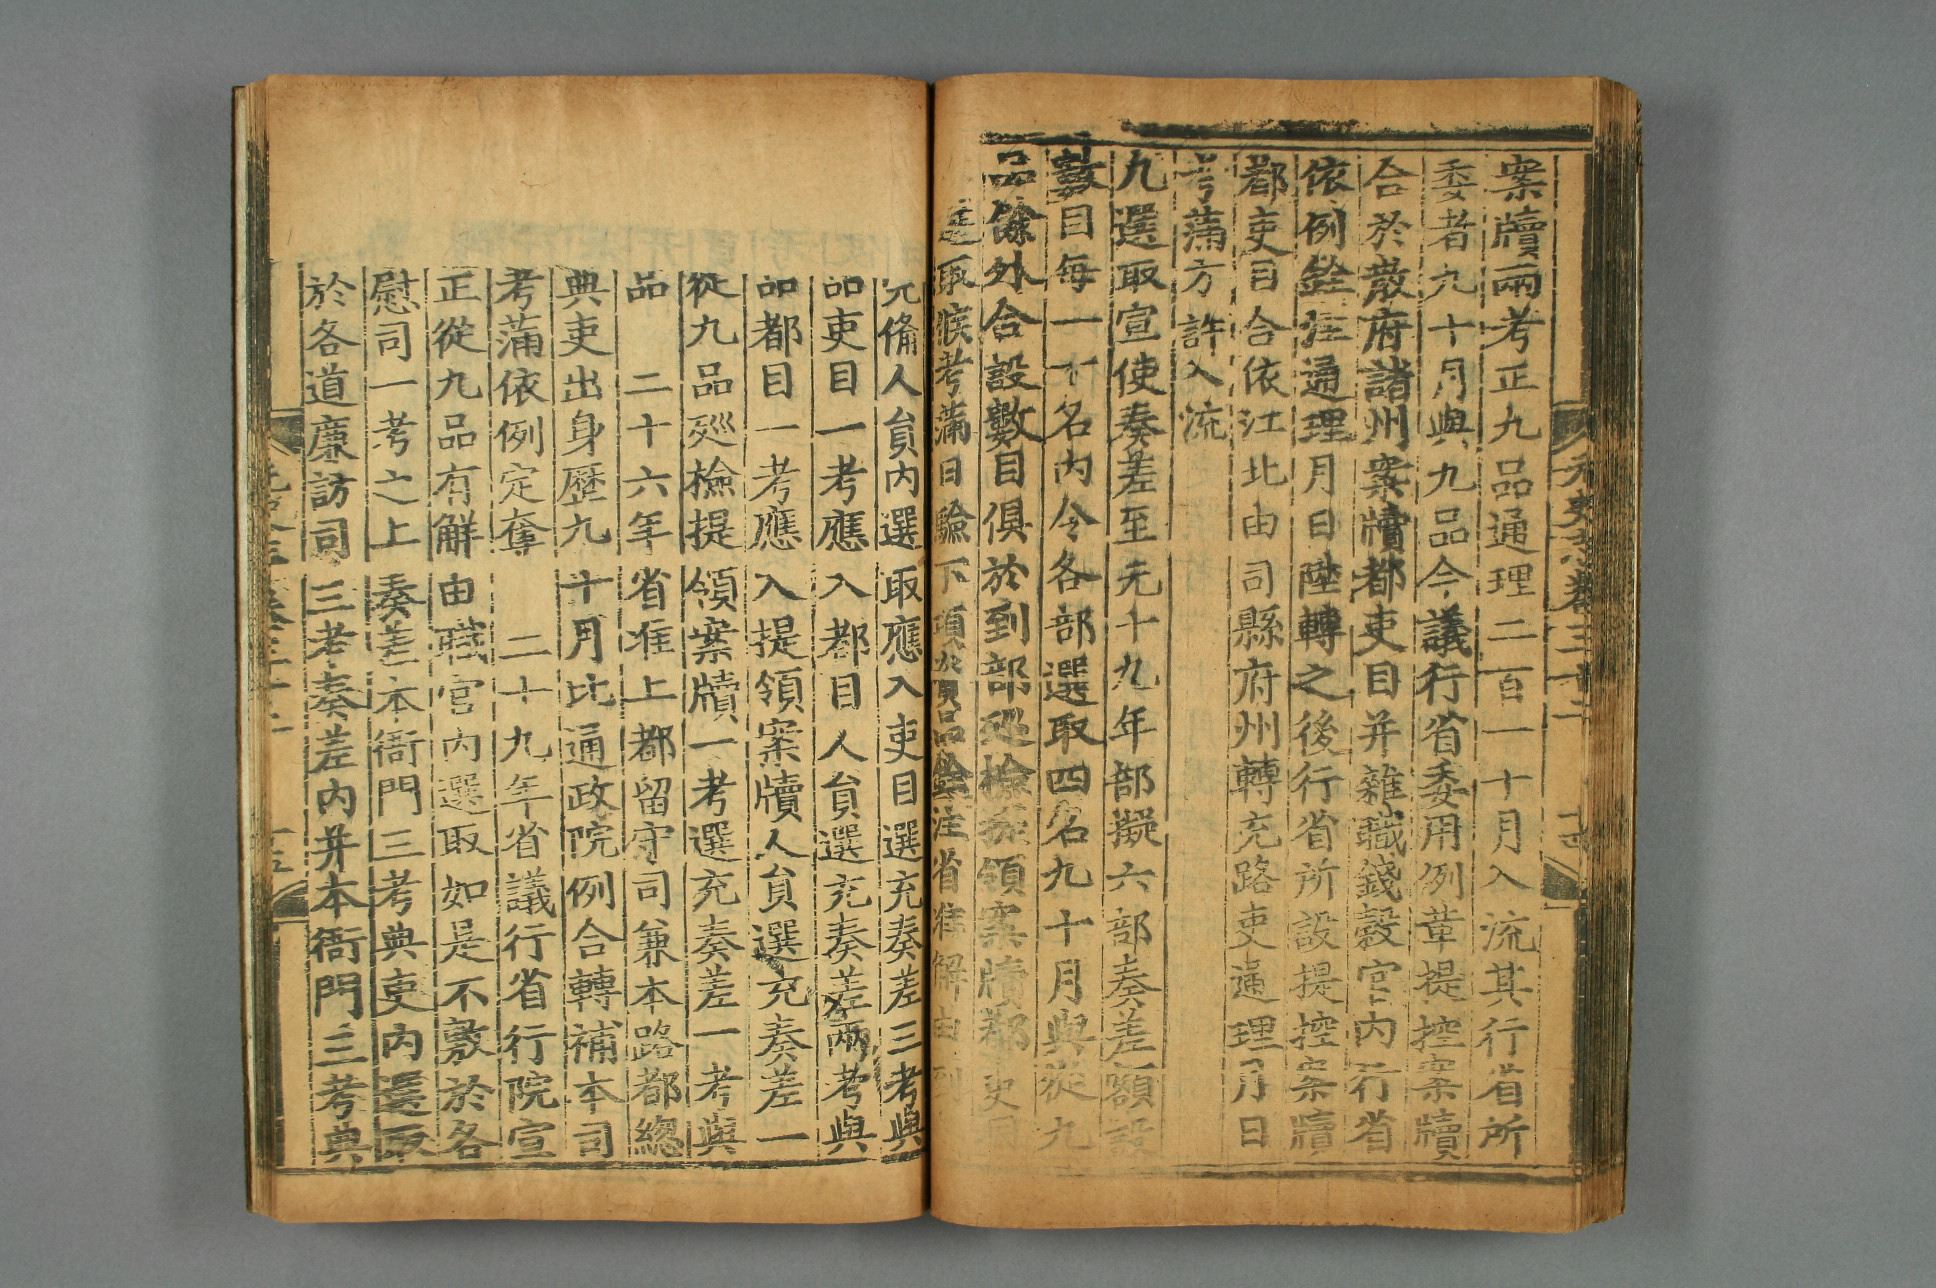 案牘兩考正九品通理二百一十月入流其行省所
委者九十月與九品今議行省委用例革提控案牘
合於散府諸州案牘都吏目并雜職錢穀官內行省
依例銓注通理月日陞轉之後行省所設提控案牘
都吏目合依江北由司縣府州轉充路吏通理月日
考滿方許入流
九選取宣使奏差至元十九年部擬六部奏差額設
數目每一十名內令各部選取四名九十月與從九
品餘外合設數目俱於到部巡檢提領案牘都吏目
選取候考滿日驗下項資品銓注省准解由到
元史志卷三十二
十四
元備人員內選取應入吏目選充奏差三考與
品吏目一考應入都目人員選充奏差兩考與
品都目一考應入提領案牘人員選充奏差一
從九品廵檢提領案牘一考選充奏差一考與
品 二十六年省准上都留守司兼本路都總
典吏出身歷九十月比通政院例合轉補本司
考滿依例定奪 二十九年省議行省行院宣
正從九品有解由職官內選取如是不敷於各
慰司一考之上奏差本衙門三考典吏內選取
於各道廉訪司三考奏差內并本衙門三考典
十五